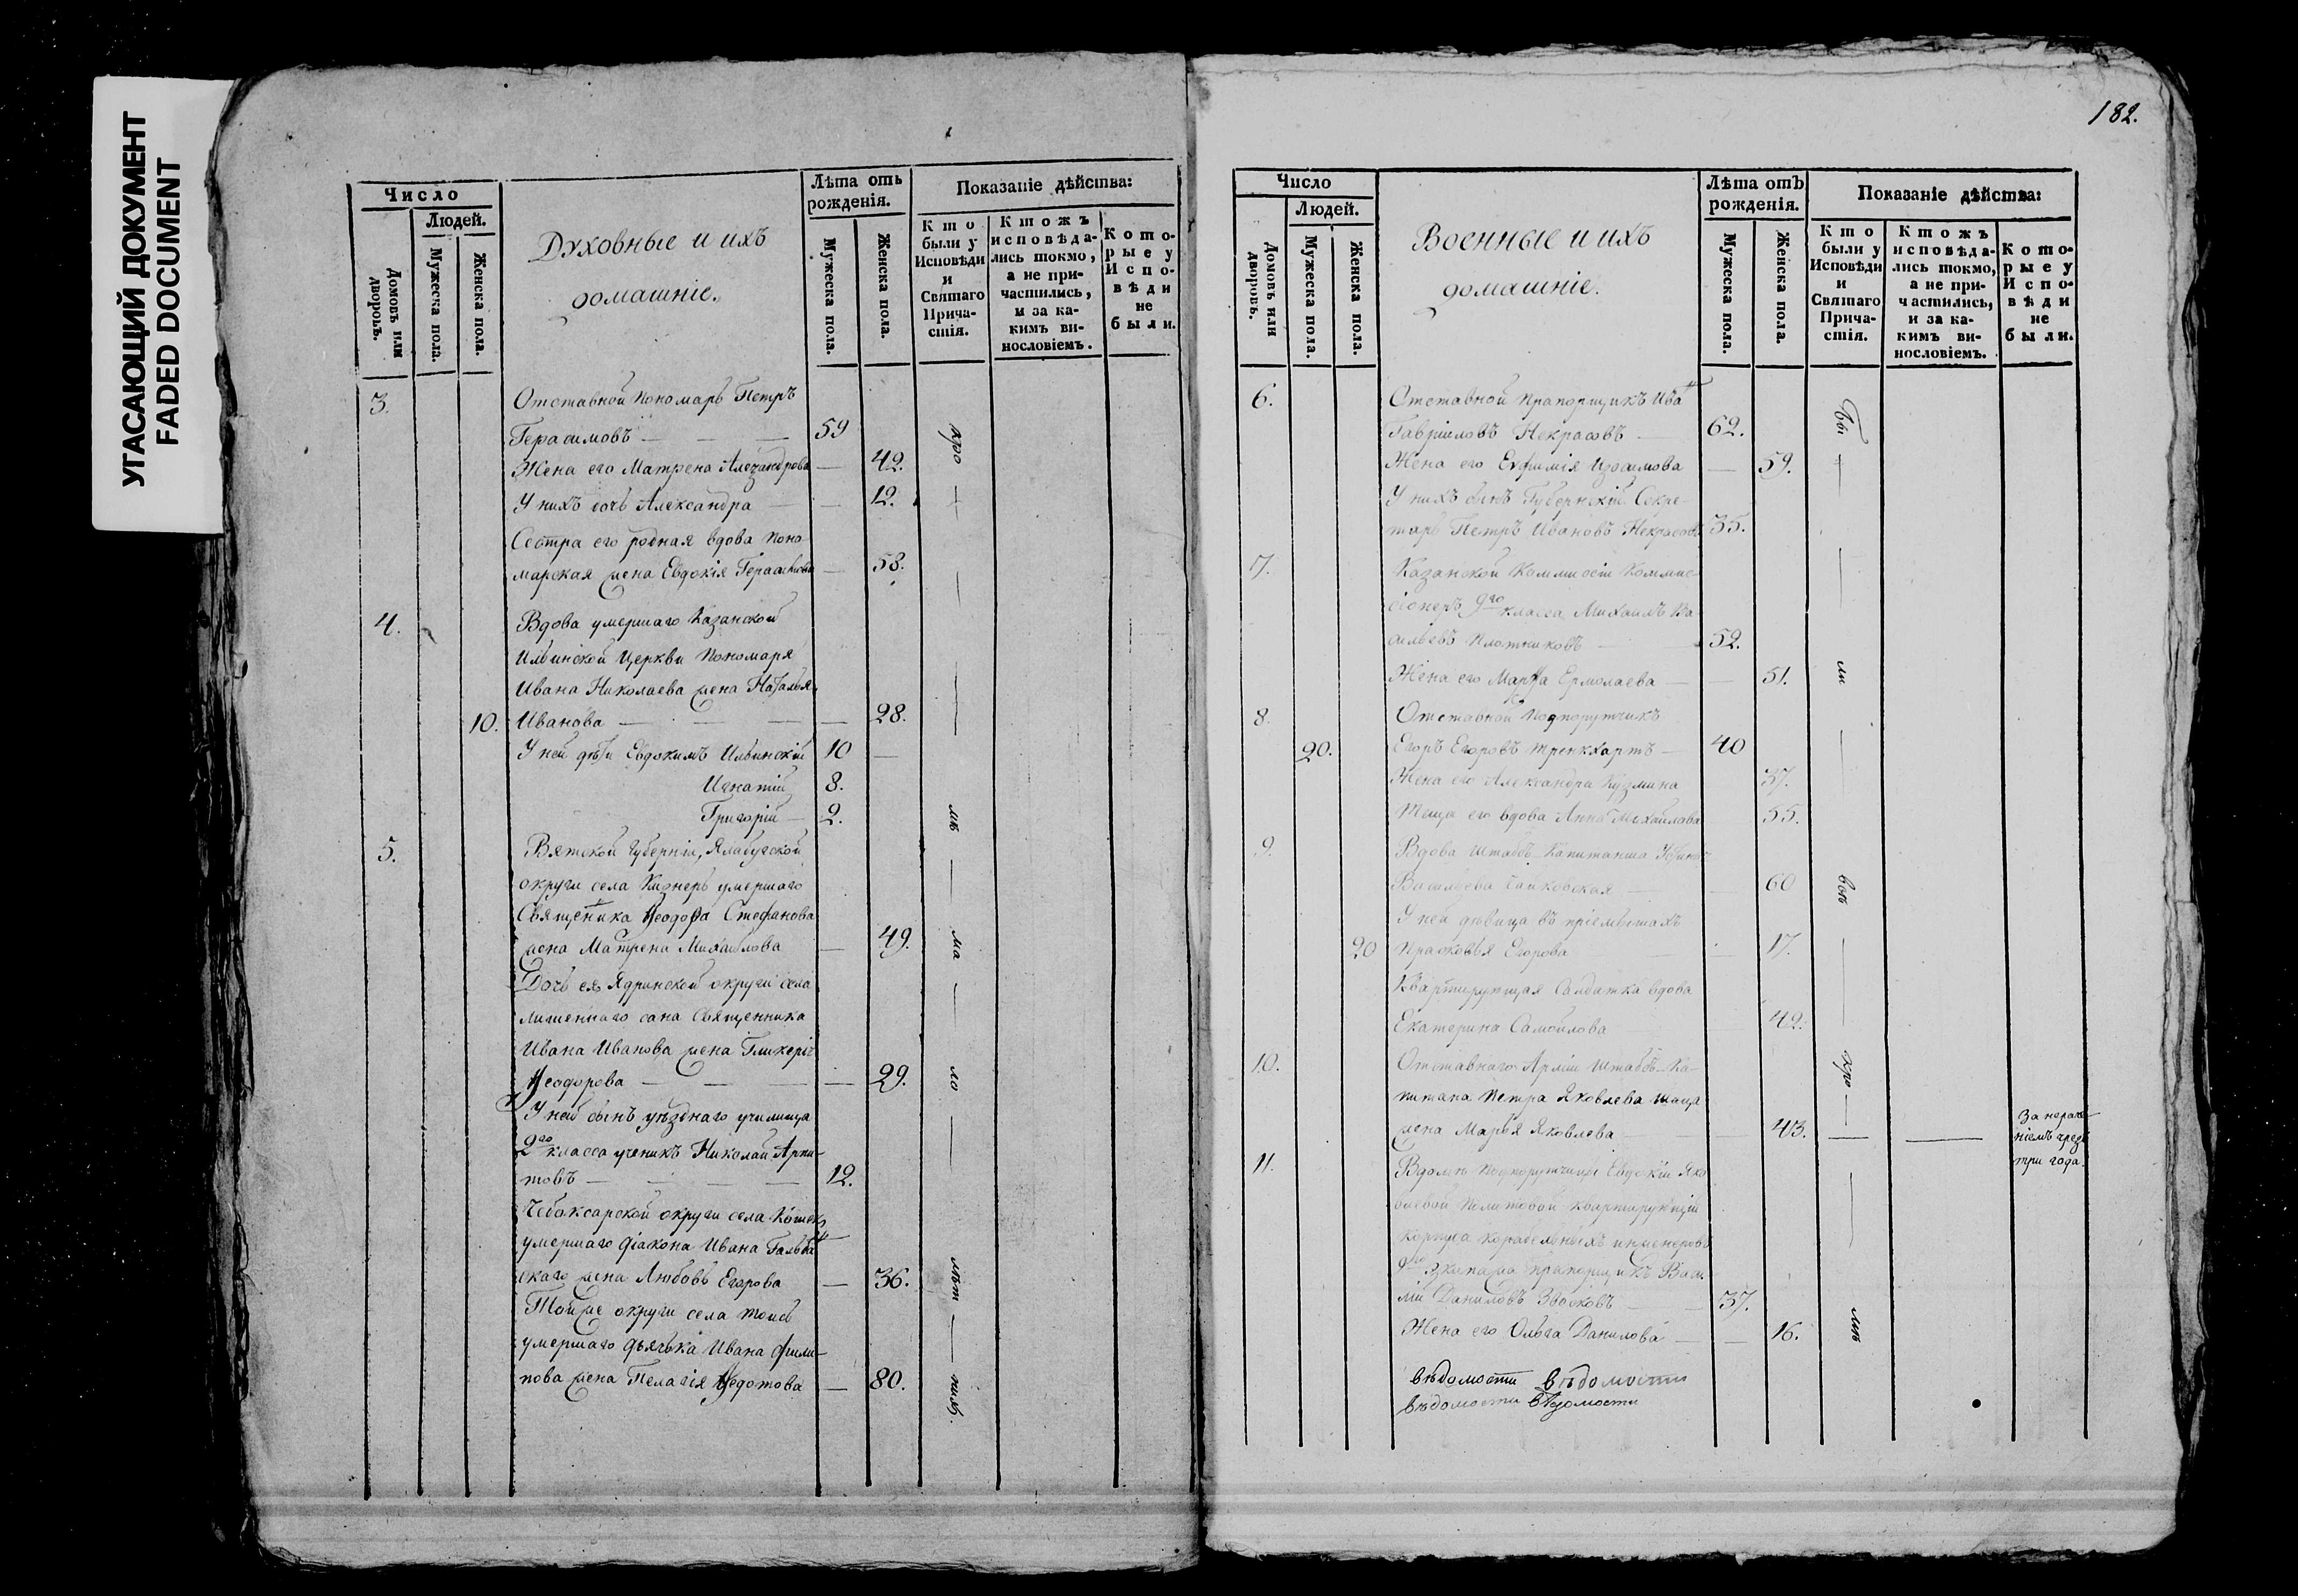 УГАСАЮЩИЙ ДОКУМЕНТ
FADED DOCUMENT
Число
Людей.
Домовъ или дворовъ.
Мужеска пола.
Женска пола.
Духовные и ихъ
домашніе.
Лѣта отъ
рожденія.
Мужеска пола.
Женска пола.
Показаніе дѣйства:
Кто
были у
Исповѣди
и
Святаго
Прича-
стія.
Ктожъ
исповѣда-
лись токмо,
а не при-
частились,
и за ка-
кимъ ви-
нословіемъ.
Кото-
рые у
Испо-
вѣди
не
были.
3. Отставной Пономарь Петръ
Герасимовъ — — — 59
Жена его Матрена Александрова — 42.
У нихъ дочь Александра — — 12.
Сестра его родная вдова Поно-
марская жена Евдокія Герасимова — 53.
4. Вдова умершаго Казанской
Ильинской Церкви Пономаря
Ивана Николаева жена Наталья
10. Иванова — — — — 28.
У ней дѣти Евдокимъ Ильинскій 10 —
Игнатій 8.
Григорій — 2.
5. Вятской Губерніи, Ялабугской
округи села умершаго
Священника Ѳеодора Стефанова
жена Матрена Михайлова — 49.
Дочь ея Ядринской округи села
лишеннаго сана Священника
Ивана Иванова жена Гликерія
Ѳеодорова — — — — 29.
У ней сынъ уѣзднаго училища
2го класса ученикъ Николай Арпи-
товъ — — — — 12.
Чебоксарской округи села
умершаго діакона Ивана Гальбан
скаго жена Любовь Егорова — 36.
Той же округи села
умершаго дьячька Ивана Фили-
пова жена Пелагія Ѳедотова — 80.
182.
Число
Людей.
Домовъ или дворовъ.
Мужеска пола.
Женска пола.
Военные и ихъ
домашніе.
Лѣта отъ
рожденія.
Мужеска пола.
Женска пола.
Показаніе дѣйства:
Кто
были у
Исповѣди
и
Святаго
Прича-
стія.
Ктожъ
исповѣда-
лись токмо,
а не при-
частились,
и за ка-
кимъ ви-
нословіемъ.
Кото-
рые у
Испо-
вѣди
не
были.
6. Отставной Прапорщикъ Иван
Гавріиловъ Некрасовъ — 62.
Жена его Евфимія Изосимова — 59.
У нихъ сынъ Губернскій Секре-
тарь Петръ Ивановъ Некрасовъ 35.
7. Казанской Коммисіи Коммис-
сіонеръ 9го класса Михаилъ Ва-
сильевъ Плотниковъ — 52.
Жена его Марѳа Ермолаева — — 51.
8. Отставной Подпорутчикъ
20. Егоръ Егоровъ Тренкхартъ — 40
Жена его Александра Кузмина 37.
Теща его вдова Анна Михайлова 55.
9. Вдова Штабсъ-Капитанша
Васильева Чайковская — 60
У ней дѣвица въ пріемышахъ
20 Прасковья Егорова 17.
Квартирующая Салдатка вдова
Екатерина Самойлова 42.
10. Отставнаго Арміи Штабсъ-Ка-
питана Петра Яковлева
жена Марья Яковлева — — 43. — —
За нераче-
ніемъ чрез
три года.
11. Вдомѣ Подпорутчицы Евдокіи Яко
влевой Политовой квартирующій
корпуса корабельныхъ инженеровъ
экипажа прапорщикъ Васи-
лій Даниловъ — 37.
Жена его Ольга Данилова — — 16.
вѣдомости вѣдомости
вѣдомости вѣдомости